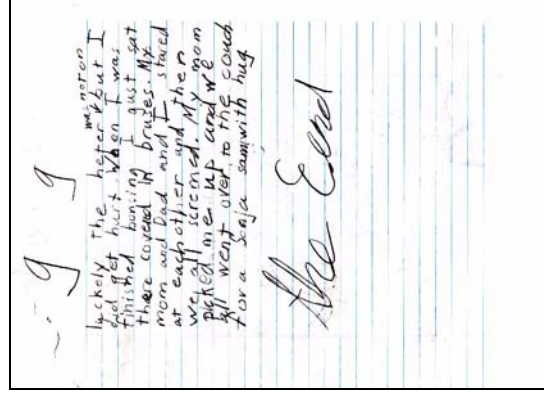 was not on
luckely the heter but I
did get hurt. When I was
finished bunsing I gust sat
there covered in bruses. My
mom and Dad and I stared
at each other and then
we all scremed. My mom
picked me up and we
all went over to the couch
for a sonja sam with hug
the End